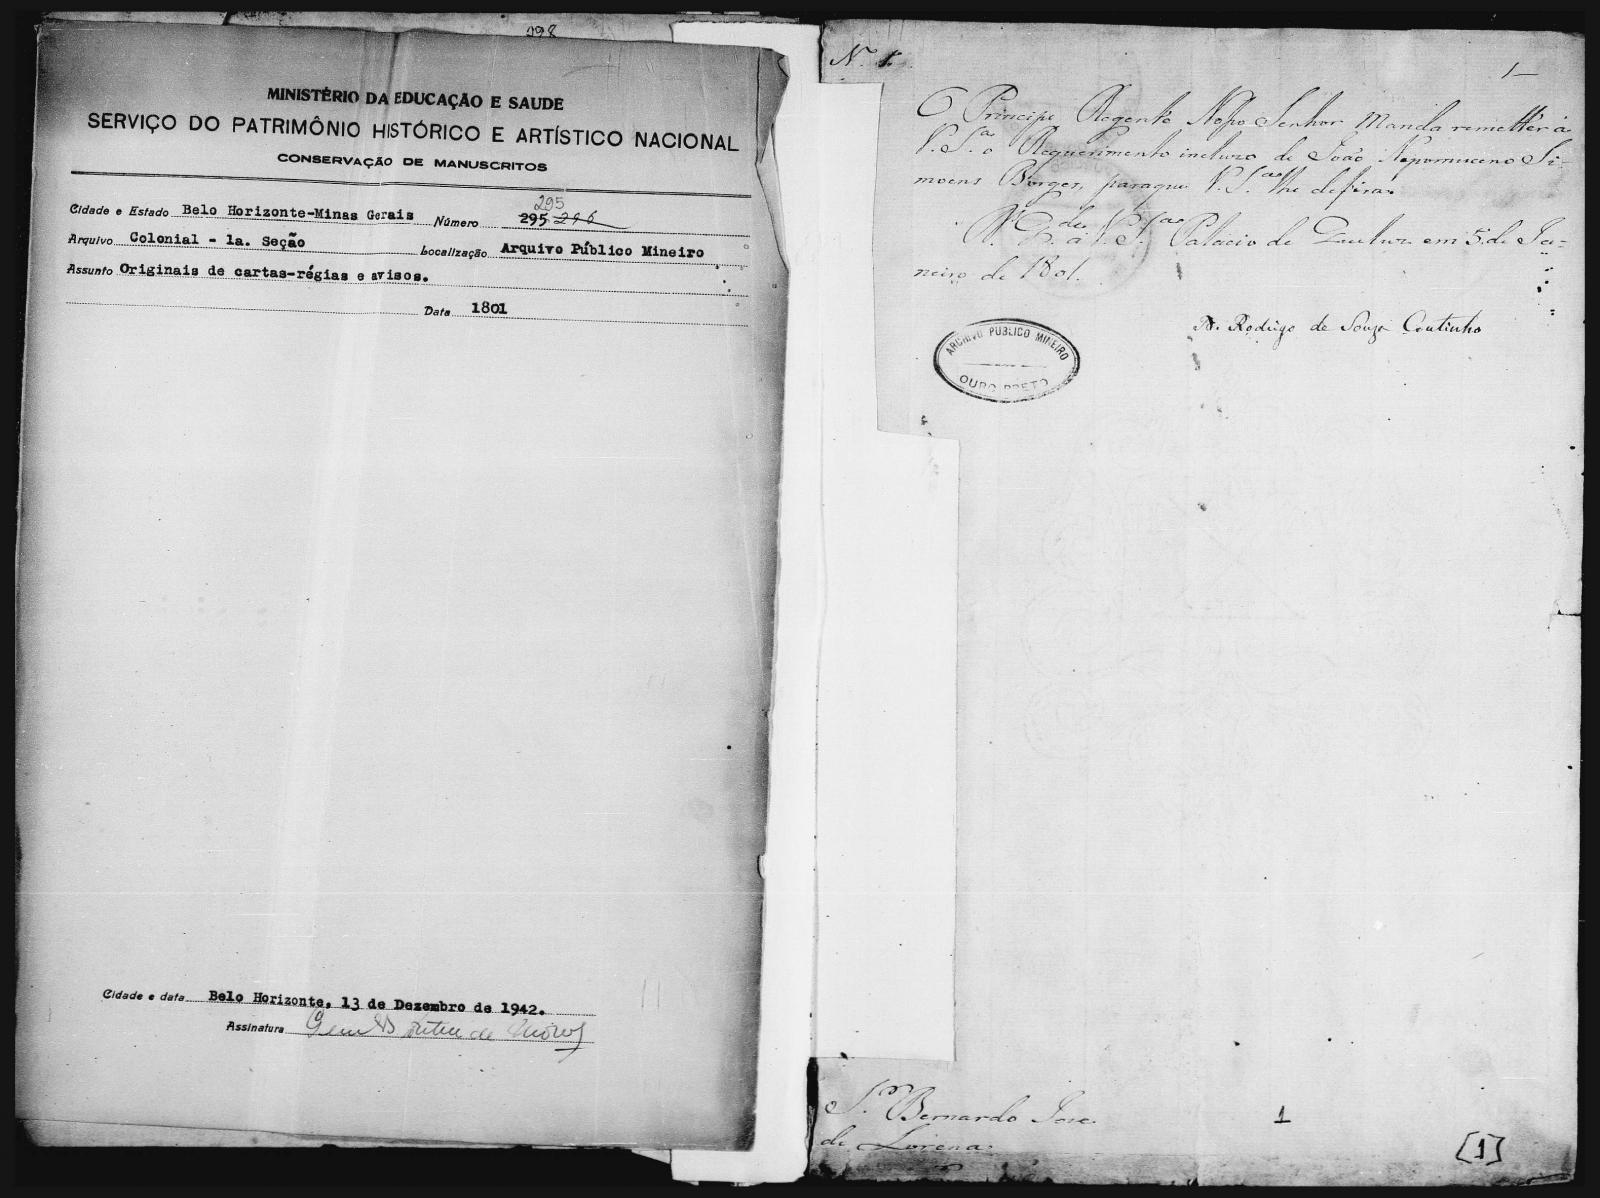 298
MINISTÉRIO DA EDUCAÇÃO E SAUDE
SERVIÇO DO PATRIMÔNIO HISTÓRICO E ARTÍSTICO NACIONAL
CONSERVAÇÃO DE MANUSCRITOS
295
Cidade e Estado Belo Horizonte-Minas Gerais Número 295 296
Arquivo Colonial - 1a. Seção Localização Arquivo Público Mineiro
Assunto Originais de cartas-régias e avisos.
Data 1801
Cidade e data Belo Horizonte, 13 de Dezembro de 1942.
Assinatura
Nº 1.
1
O Principe Regente Nosso Senhor Manda remetter á
V. S.ª o Requerimento incluzo de João Nepomuceno Si-
moens Borges, paraque V. S.ª lhe defira.
D.s G.de a V. S.ª Palacio de Queluz em 5 de Ja-
neiro de 1801.
D. Rodrigo de Souza Coutinho
ARCHIVO PUBLICO MINEIRO
OURO PRETO
S.r Bernardo Joze
de Lorena.
1
[1]